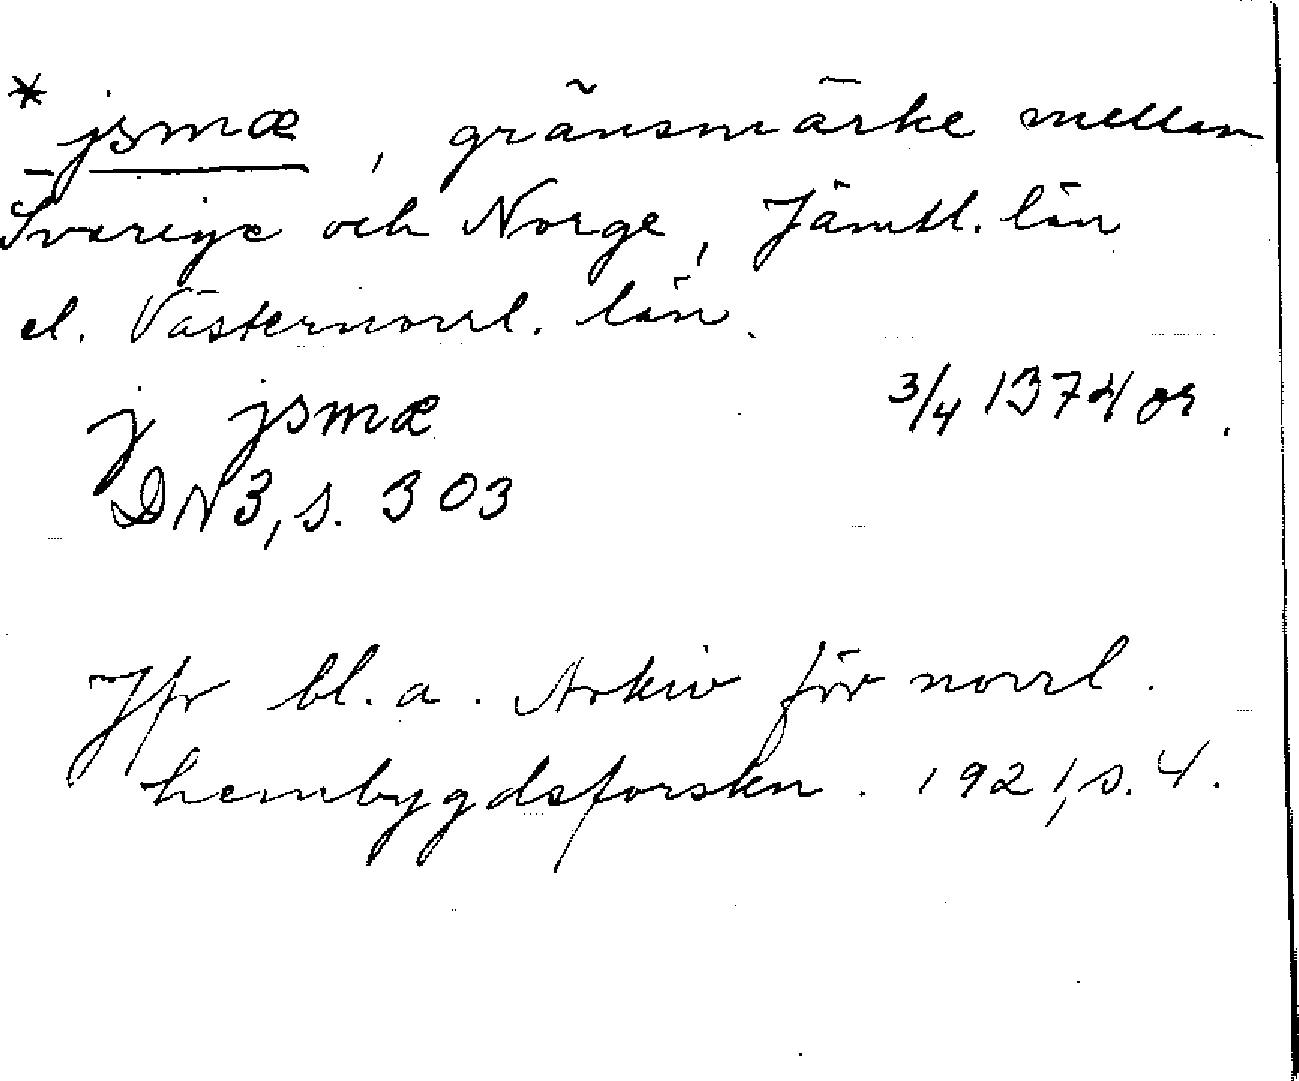 * jsmæ, gränsmärke mellan
Sverige och Norge, Jämtl. län
el. Västernorrl. län.
j jsmæ 3/4 1374 or.
DN 3, s. 303
Jfr bl. a. Arkiv för norrl.
hembygdsforskn. 1921, s. 4.